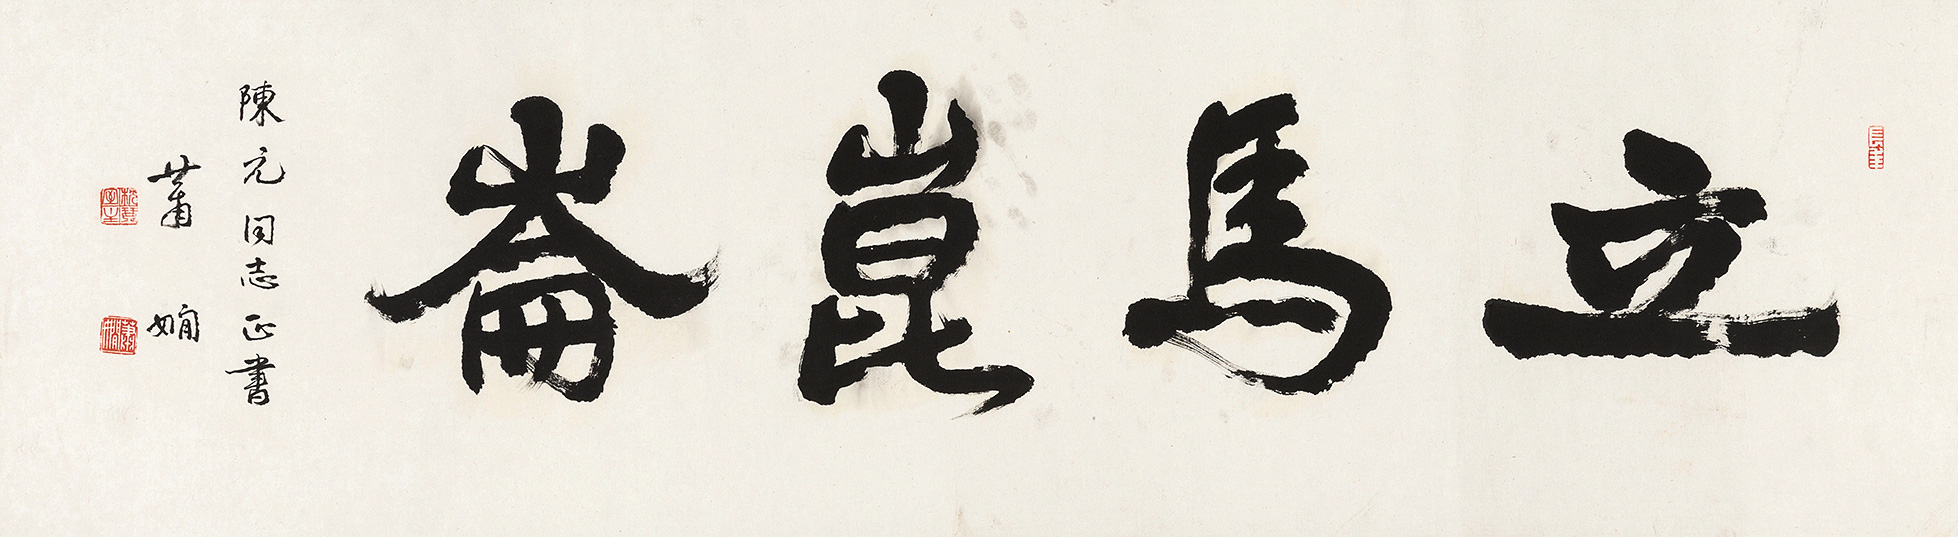 立馬崑崙
陳元同志正書
萧嫻